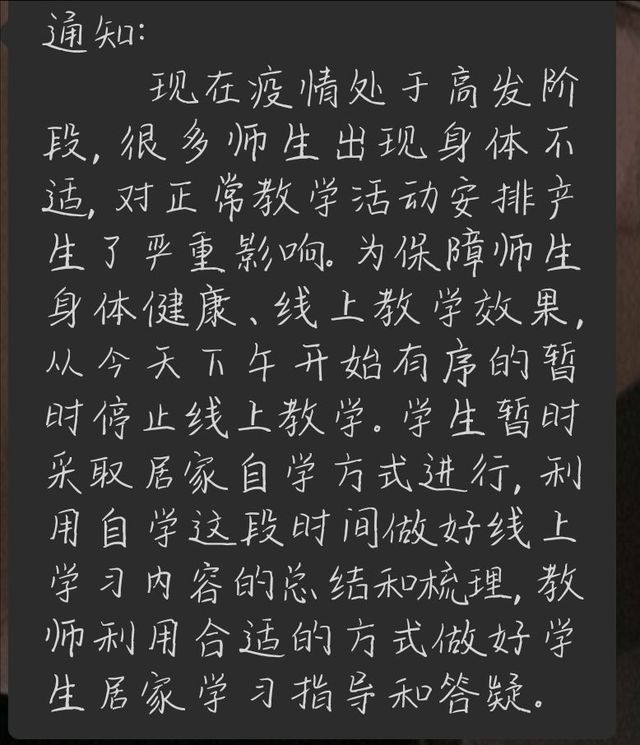 通知:
现在疫情处于高发阶
段,很多师生出现身体不
适,对正常教学活动安排产
生了严重影响。为保障师生
身体健康、线上教学效果,
从今天下午开始有序的暂
时停止线上教学。学生暂时
采取居家自学方式进行,利
用自学这段时间做好线上
学习内容的总结和梳理,教
师利用合适的方式做好学
生居家学习指导和答疑。